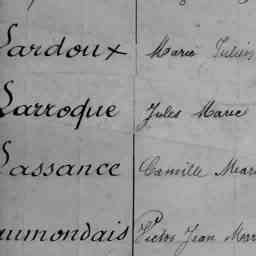 Lardoux Marie Julien
Larroque Jules Marie
Lassance Camille Mari
aumondais Victor Jean Marie